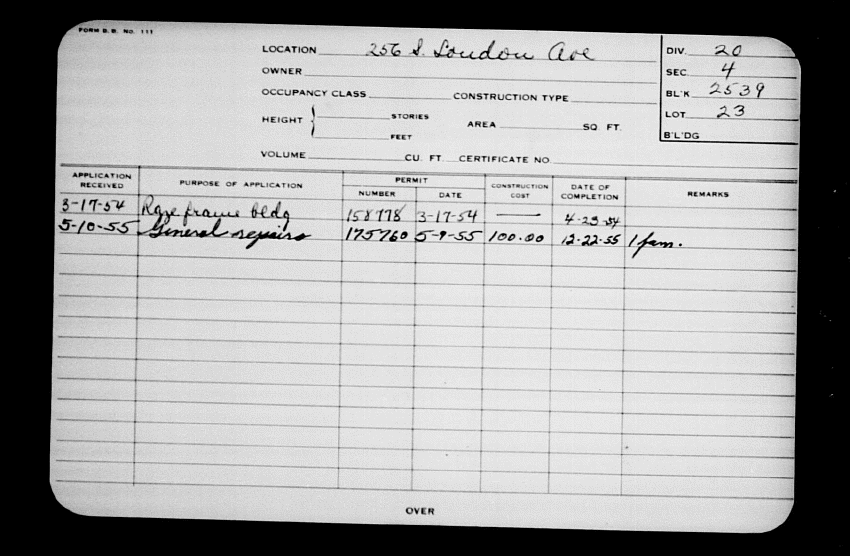 FORM B.B. NO. 111
LOCATION 256 S. Loudon Ave
OWNER
OCCUPANCY CLASS CONSTRUCTION TYPE
HEIGHT STORIES
FEET
AREA SQ. FT.
VOLUME CU. FT. CERTIFICATE NO.
DIV. 20
SEC. 4
BL'K 2539
LOT 23
B'L'DG
APPLICATION RECEIVED PURPOSE OF APPLICATION PERMIT NUMBER DATE CONSTRUCTION COST DATE OF COMPLETION REMARKS
3-17-54 Raze frame bldg 158778 3-17-54 — 4-23-54
5-10-55 General repairs 175760 5-9-55 100.00 12-22-55 1 fam.
OVER